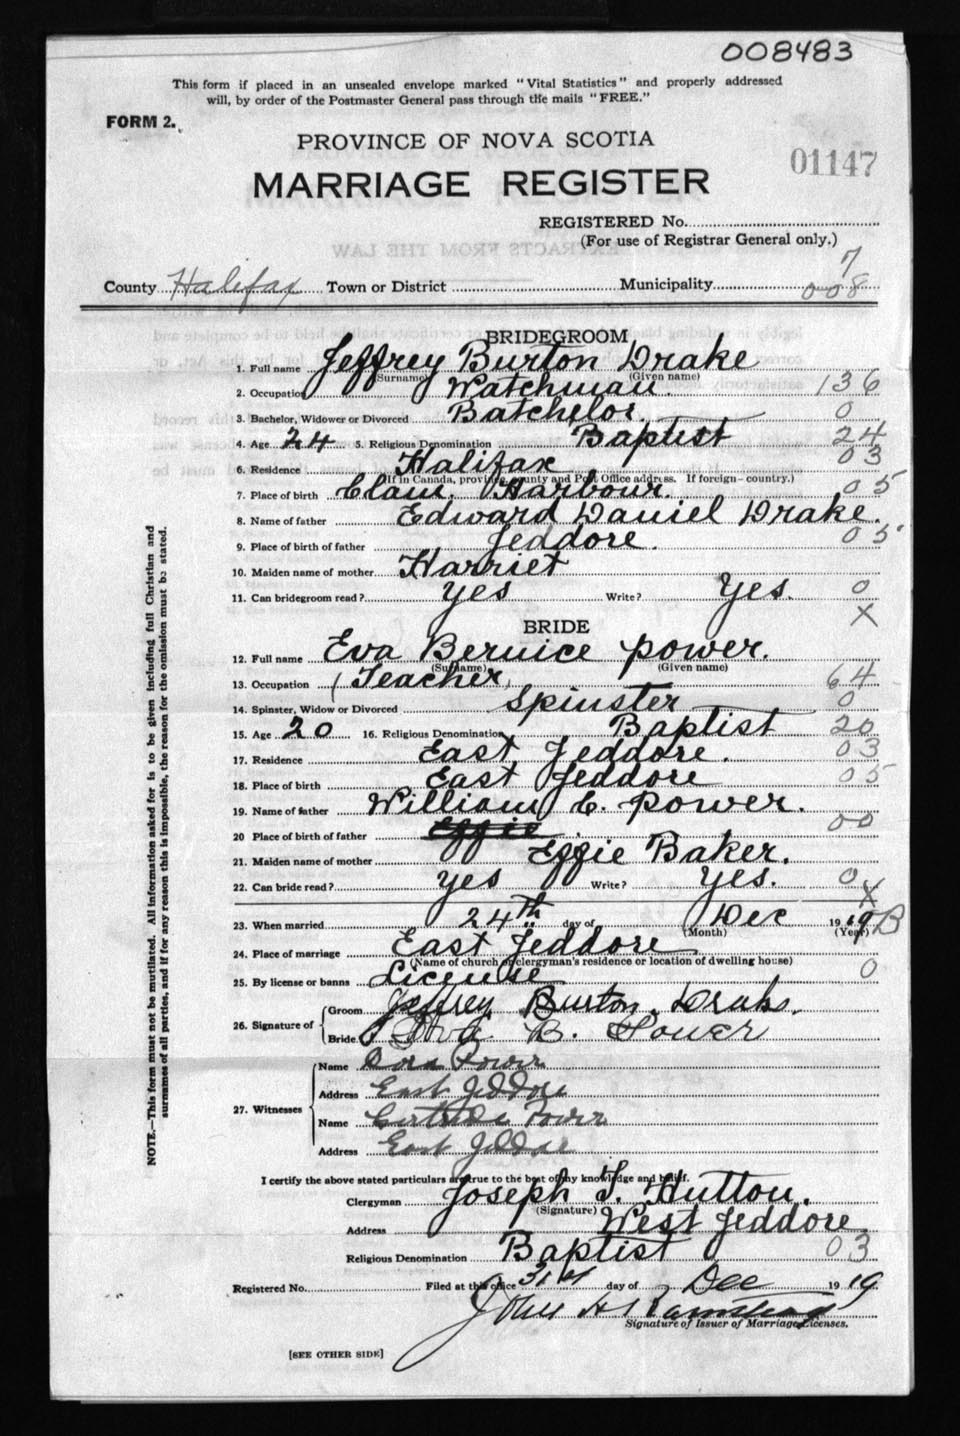 008483
This form if placed in an unsealed envelope marked "Vital Statistics" and properly addressed
will, by order of the Postmaster General pass through the mails "FREE."
FORM 2.
PROVINCE OF NOVA SCOTIA
01147
MARRIAGE REGISTER
REGISTERED No.
(For use of Registrar General only.)
7
County Halifax Town or District Municipality 008
BRIDEGROOM
1. Full name Jeffrey Burton Drake
(Surname) (Given name)
2. Occupation Watchman. 136
3. Bachelor, Widower or Divorced Batchelor. 0
4. Age 24 5. Religious Denomination Baptist 24
6. Residence Halifax 03
(If in Canada, province, county and Post Office address. If foreign—country.)
7. Place of birth Clam Harbour. 05
8. Name of father Edward Daniel Drake.
9. Place of birth of father Jeddore. 05
10. Maiden name of mother Harriet
11. Can bridegroom read? Yes Write? Yes. 0
X
BRIDE
12. Full name Eva Bernice power.
(Surname) (Given name)
13. Occupation (Teacher) 64
14. Spinster, Widow or Divorced Spinster 0
15. Age 20 16. Religious Denomination Baptist 20
17. Residence East Jeddore. 03
18. Place of birth East Jeddore 05
19. Name of father William C. power.
20 Place of birth of father Effie 00
21. Maiden name of mother Effie Baker.
22. Can bride read? Yes Write? Yes. 0
X
23. When married 24th day of Dec 19 19 B
(Month) (Year)
24. Place of marriage East Jeddore
(Name of church or clergyman's residence or location of dwelling house)
25. By license or banns License 0
26. Signature of Groom Jeffrey Burton. Drake.
Bride Eva B. Power
27. Witnesses Name Dora Power
Address East Jeddore
Name Gertrude Power
Address East Jeddore
I certify the above stated particulars are true to the best of my knowledge and belief.
Clergyman Joseph S. Hutton.
(Signature)
Address West Jeddore
Religious Denomination Baptist 03
Registered No. Filed at this office 31st day of Dec 19 19
John H
Signature of Issuer of Marriage Licenses.
[SEE OTHER SIDE]
NOTE.—This form must not be mutilated. All information asked for is to be given including full Christian and
surnames of all parties, and if for any reason this is impossible, the reason for the omission must be stated.